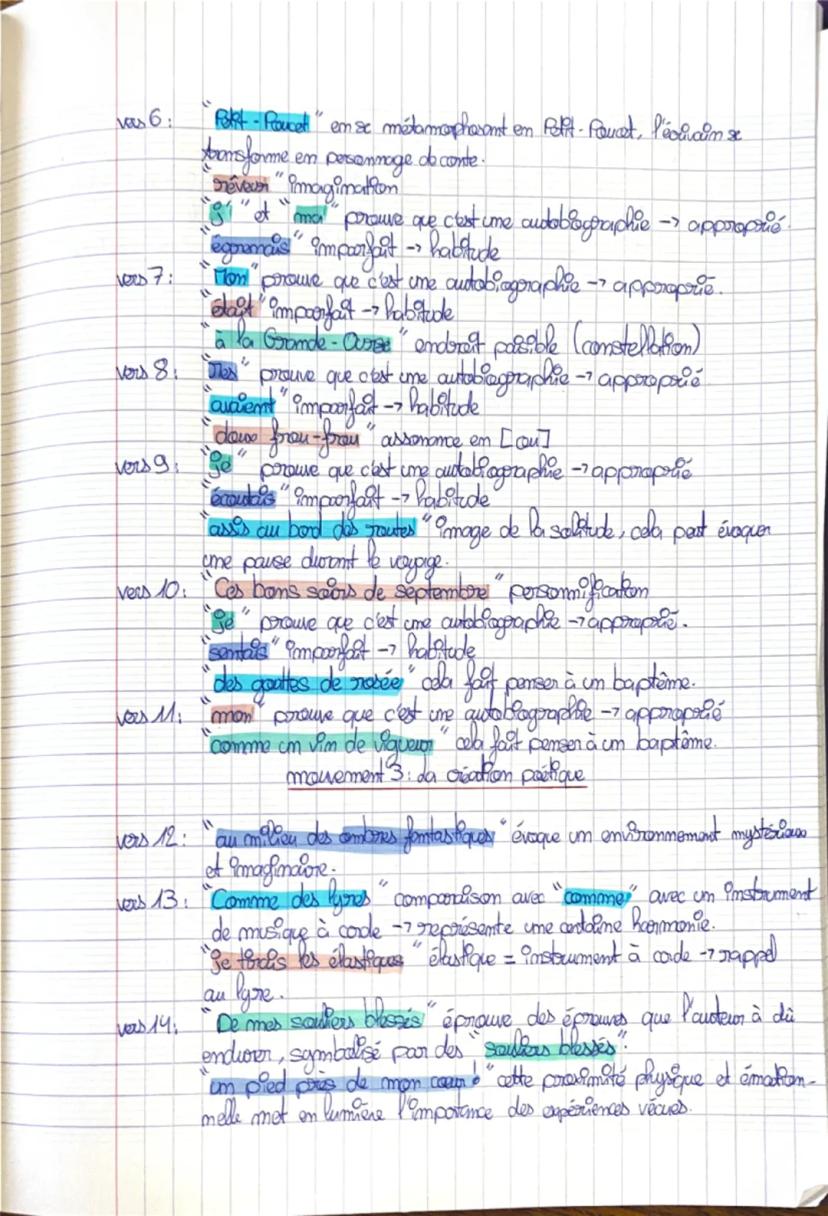 vers 6 : "Petit-Poucet" en se métamorphosant en Petit-Poucet, l'écrivain se
transforme en personnage de conte.
"rêveur" imagination
"j'" et "ma" prouve que c'est une autobiographie → approprié.
"égrenais" imparfait → habitude
vers 7 : "Mon" prouve que c'est une autobiographie → approprié.
"était" imparfait → habitude
"à la Grande-Ourse" endroit paisible (constellation)
vers 8 : "Mes" prouve que c'est une autobiographie → approprié
"avaient" imparfait → habitude
"doux frou-frou" assonance en [ou]
vers 9 : "je" prouve que c'est une autobiographie → approprié
"écoutais" imparfait → habitude
"assis au bord des routes" image de la solitude, cela peut évoquer
une pause durant le voyage.
vers 10 : "Ces bons soirs de septembre" personnification
"je" prouve que c'est une autobiographie → approprié.
"sentais" imparfait → habitude
"des gouttes de rosée" cela fait penser à un baptême.
vers 11 : "mon" prouve que c'est une autobiographie → approprié
"comme un vin de vigueur" cela fait penser à un baptême.
mouvement 3 : la création poétique
vers 12 : "au milieu des ombres fantastiques" évoque un environnement mystérieux
et imaginaire.
vers 13 : "Comme des lyres" comparaison avec "comme" avec un instrument
de musique à corde → représente une certaine harmonie.
"je tirais les élastiques" élastique = instrument à corde → rappel
au lyre.
vers 14 : "De mes souliers blessés" éprouve des épreuves que l'auteur à dû
endurer, symbolisé par des "souliers blessés".
"un pied près de mon cœur !" cette proximité physique et émotion-
nelle met en lumière l'importance des expériences vécues.